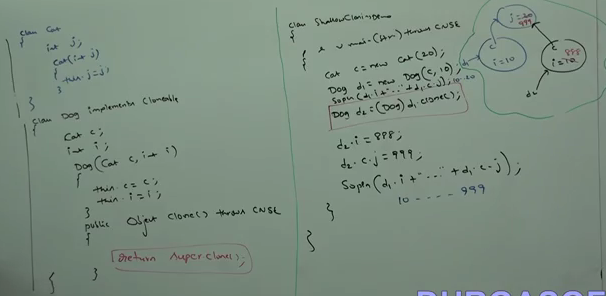 class Cat
{
int j;
Cat(int j)
{
this.j=j;
}
}
class Dog implements Cloneable
{
Cat c;
int i;
Dog(Cat c, int i)
{
this.c = c;
this.i = i;
}
public Object clone() throws CNSE
{
return super.clone();
}
}
class ShallowCloningDemo
{
p s v main(String[] args) throws CNSE
{
Cat c = new Cat(20);
Dog d1 = new Dog(c, 10);
Sopln(d1.i+"..."+d1.c.j); 10..20
Dog d2 = (Dog) d1.clone();
d2.i = 888;
d2.c.j = 999;
Sopln(d1.i + "....." + d1.c.j);
10 ---- 999
}
}
j=20
999
c
i=10
d1
c
888
i=10
d2